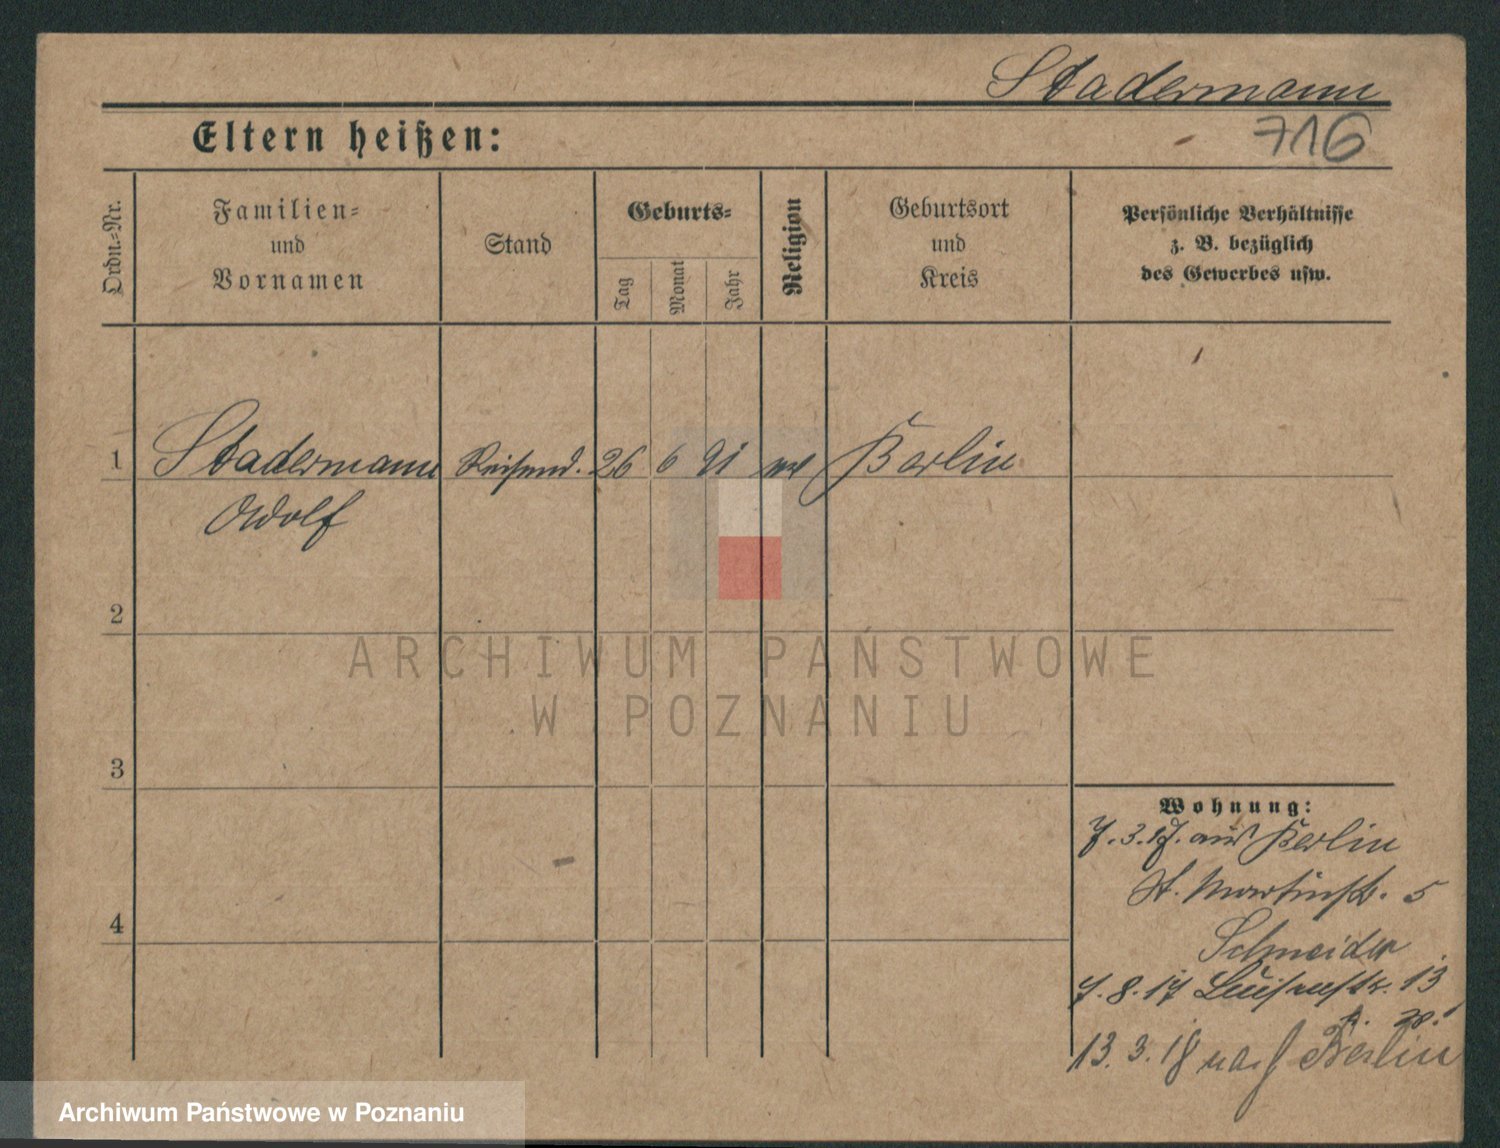 Stadermann
716
Eltern heißen:
Ordn.-Nr.
Familien-
und
Vornamen
Stand
Geburts-
Tag
Monat
Jahr
Religion
Geburtsort
und
Kreis
Persönliche Verhältnisse
z. B. bezüglich
des Gewerbes usw.
1
Stadermann Reisend. 26 6 91 Berlin
Adolf
2
3
4
Wohnung:
7. 3. 17. aus Berlin
St. Martinstr. 5
Schneider
7. 8. 17 Luisenstr. 13
13. 3. 18 nach Berlin
ARCHIWUM PAŃSTWOWE
W POZNANIU
Archiwum Państwowe w Poznaniu